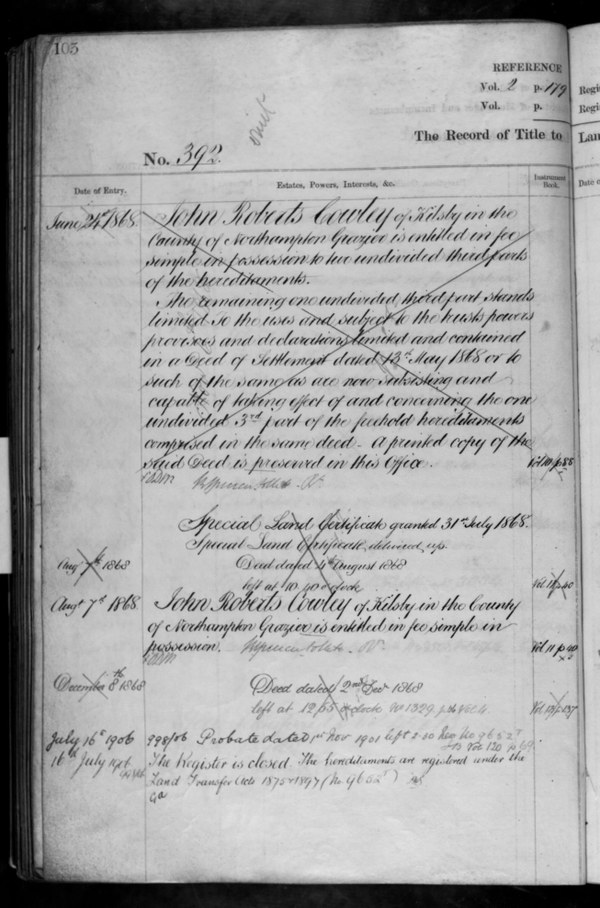 105
REFERENCE
Vol. 2 p. 179
Vol. p.
The Record of Title to
No. 392.
Date of Entry.
Estates, Powers, Interests, &c.
Instrument Book.
June 24th 1868.
John Roberts Cowley of Kilsby in the
County of Northampton Grazier is entitled in fee
simple in possession to two undivided third parts
of the hereditaments.
The remaining one undivided third part stands
limited to the uses and subject to the trusts powers
provisoes and declarations limited and contained
in a Deed of Settlement dated 13th May 1868 or to
such of the same as are now subsisting and
capable of taking effect of and concerning the one
undivided 3rd part of the freehold hereditaments
comprised in the same deed. A printed copy of the
said Deed is preserved in this Office.
Vol 10 p 88
Special Land Certificate granted 31st July 1868.
Special Land Certificate delivered up.
Augt 7th 1868
Deed dated 4th August 1868
left at 10.40 o'clock
Vol. 11 p 40
Augt 7th 1868.
John Roberts Cowley of Kilsby in the County
of Northampton Grazier is entitled in fee simple in
possession.
Vol 11 p 40
December 8th 1868
Deed dated 2nd Decr 1868
left at 12.55 o'clock No 1329
July 16th 1906
998/06 Probate dated 1st Nov 1901 left 2-10
Vol 120 p 69
16th July 1906
The Register is closed. The hereditaments are registered under the
Land Transfer Acts 1875 & 1897 (No 9652)
Regi
Regi
Lan
Date o